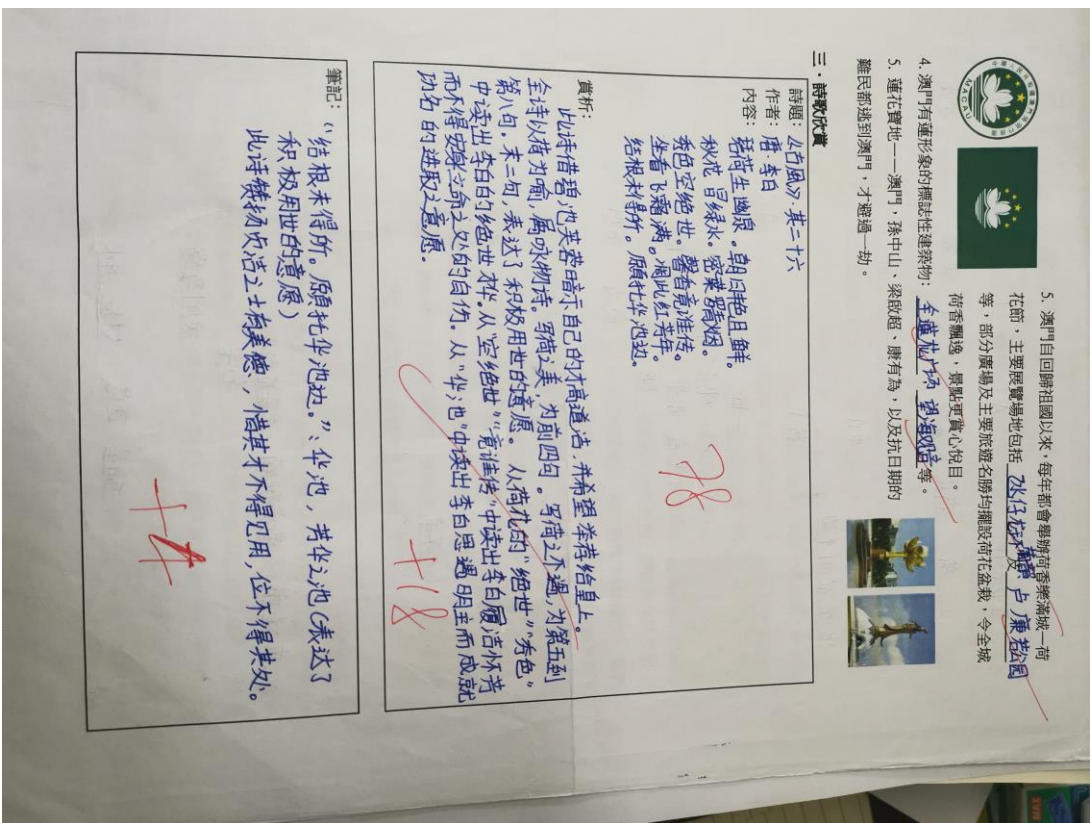 MACAU
5. 澳門自回歸祖國以來，每年都會舉辦荷香樂滿城—荷
花節，主要展覽場地包括 氹仔 及 卢廉若公园
等，部分廣場及主要旅遊名勝均擺設荷花盆栽，令全城
荷香飄逸，景點更賞心悅目。
4. 澳門有蓮形象的標誌性建築物: 金莲花广场 望海观音 等。
5. 蓮花寶地——澳門，孫中山、梁啟超、康有為，以及抗日期的
難民都逃到澳門，才避過一劫。
三．詩歌欣賞
詩題: 《古風》·其二十六
作者: 唐·李白
内容: 碧荷生幽泉。朝日艳且鲜。
秋花冒绿水。密葉罗青烟。
秀色空绝世。馨香竟谁传。
坐看飞霜满。凋此红芳年。
结根未得所。愿托华池边。
78
賞析:
此诗借碧池芙蓉暗示自己的才高道洁,并希望举荐给皇上。
全诗以荷为喻,属咏物诗。写荷之美,为前四句。写荷之不遇,为第五到
第八句。末二句,表达了积极用世的意愿。从荷花的"绝世""秀色"
中读出李白的绝世才华。从"空绝世""竟谁传"中读出李白履洁怀芳
而不得之处的自伤。从"华池"中读出李白思遇明主而成就
功名的进取之意愿。
+18
筆記: "结根未得所。愿托华池边。"：华池，芳华之池(表达了
积极用世的意愿)
此诗犊贞洁之士有美德，惜其才不得见用，位不得其处。
+4